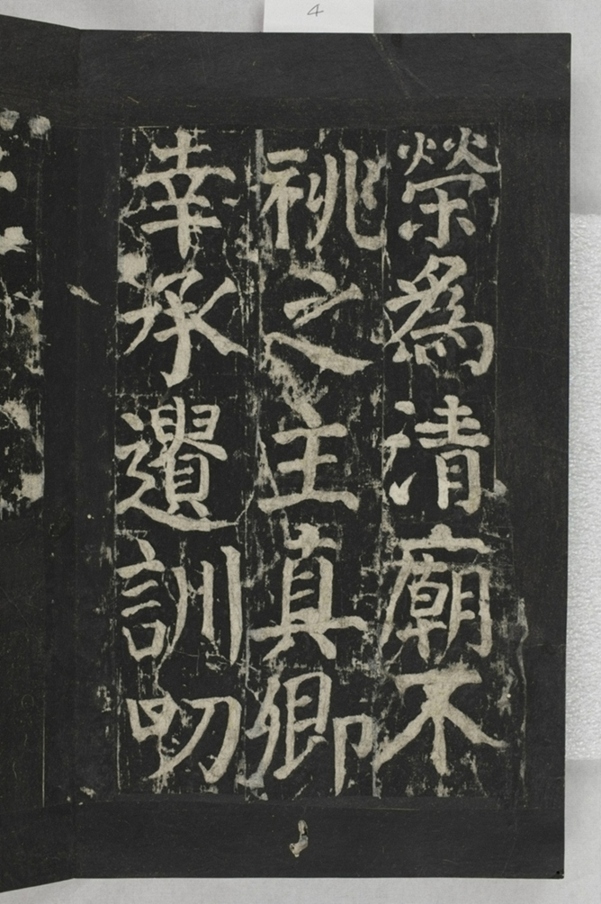 4
榮為清廟不
祧之主真卿
幸承遺訓叨